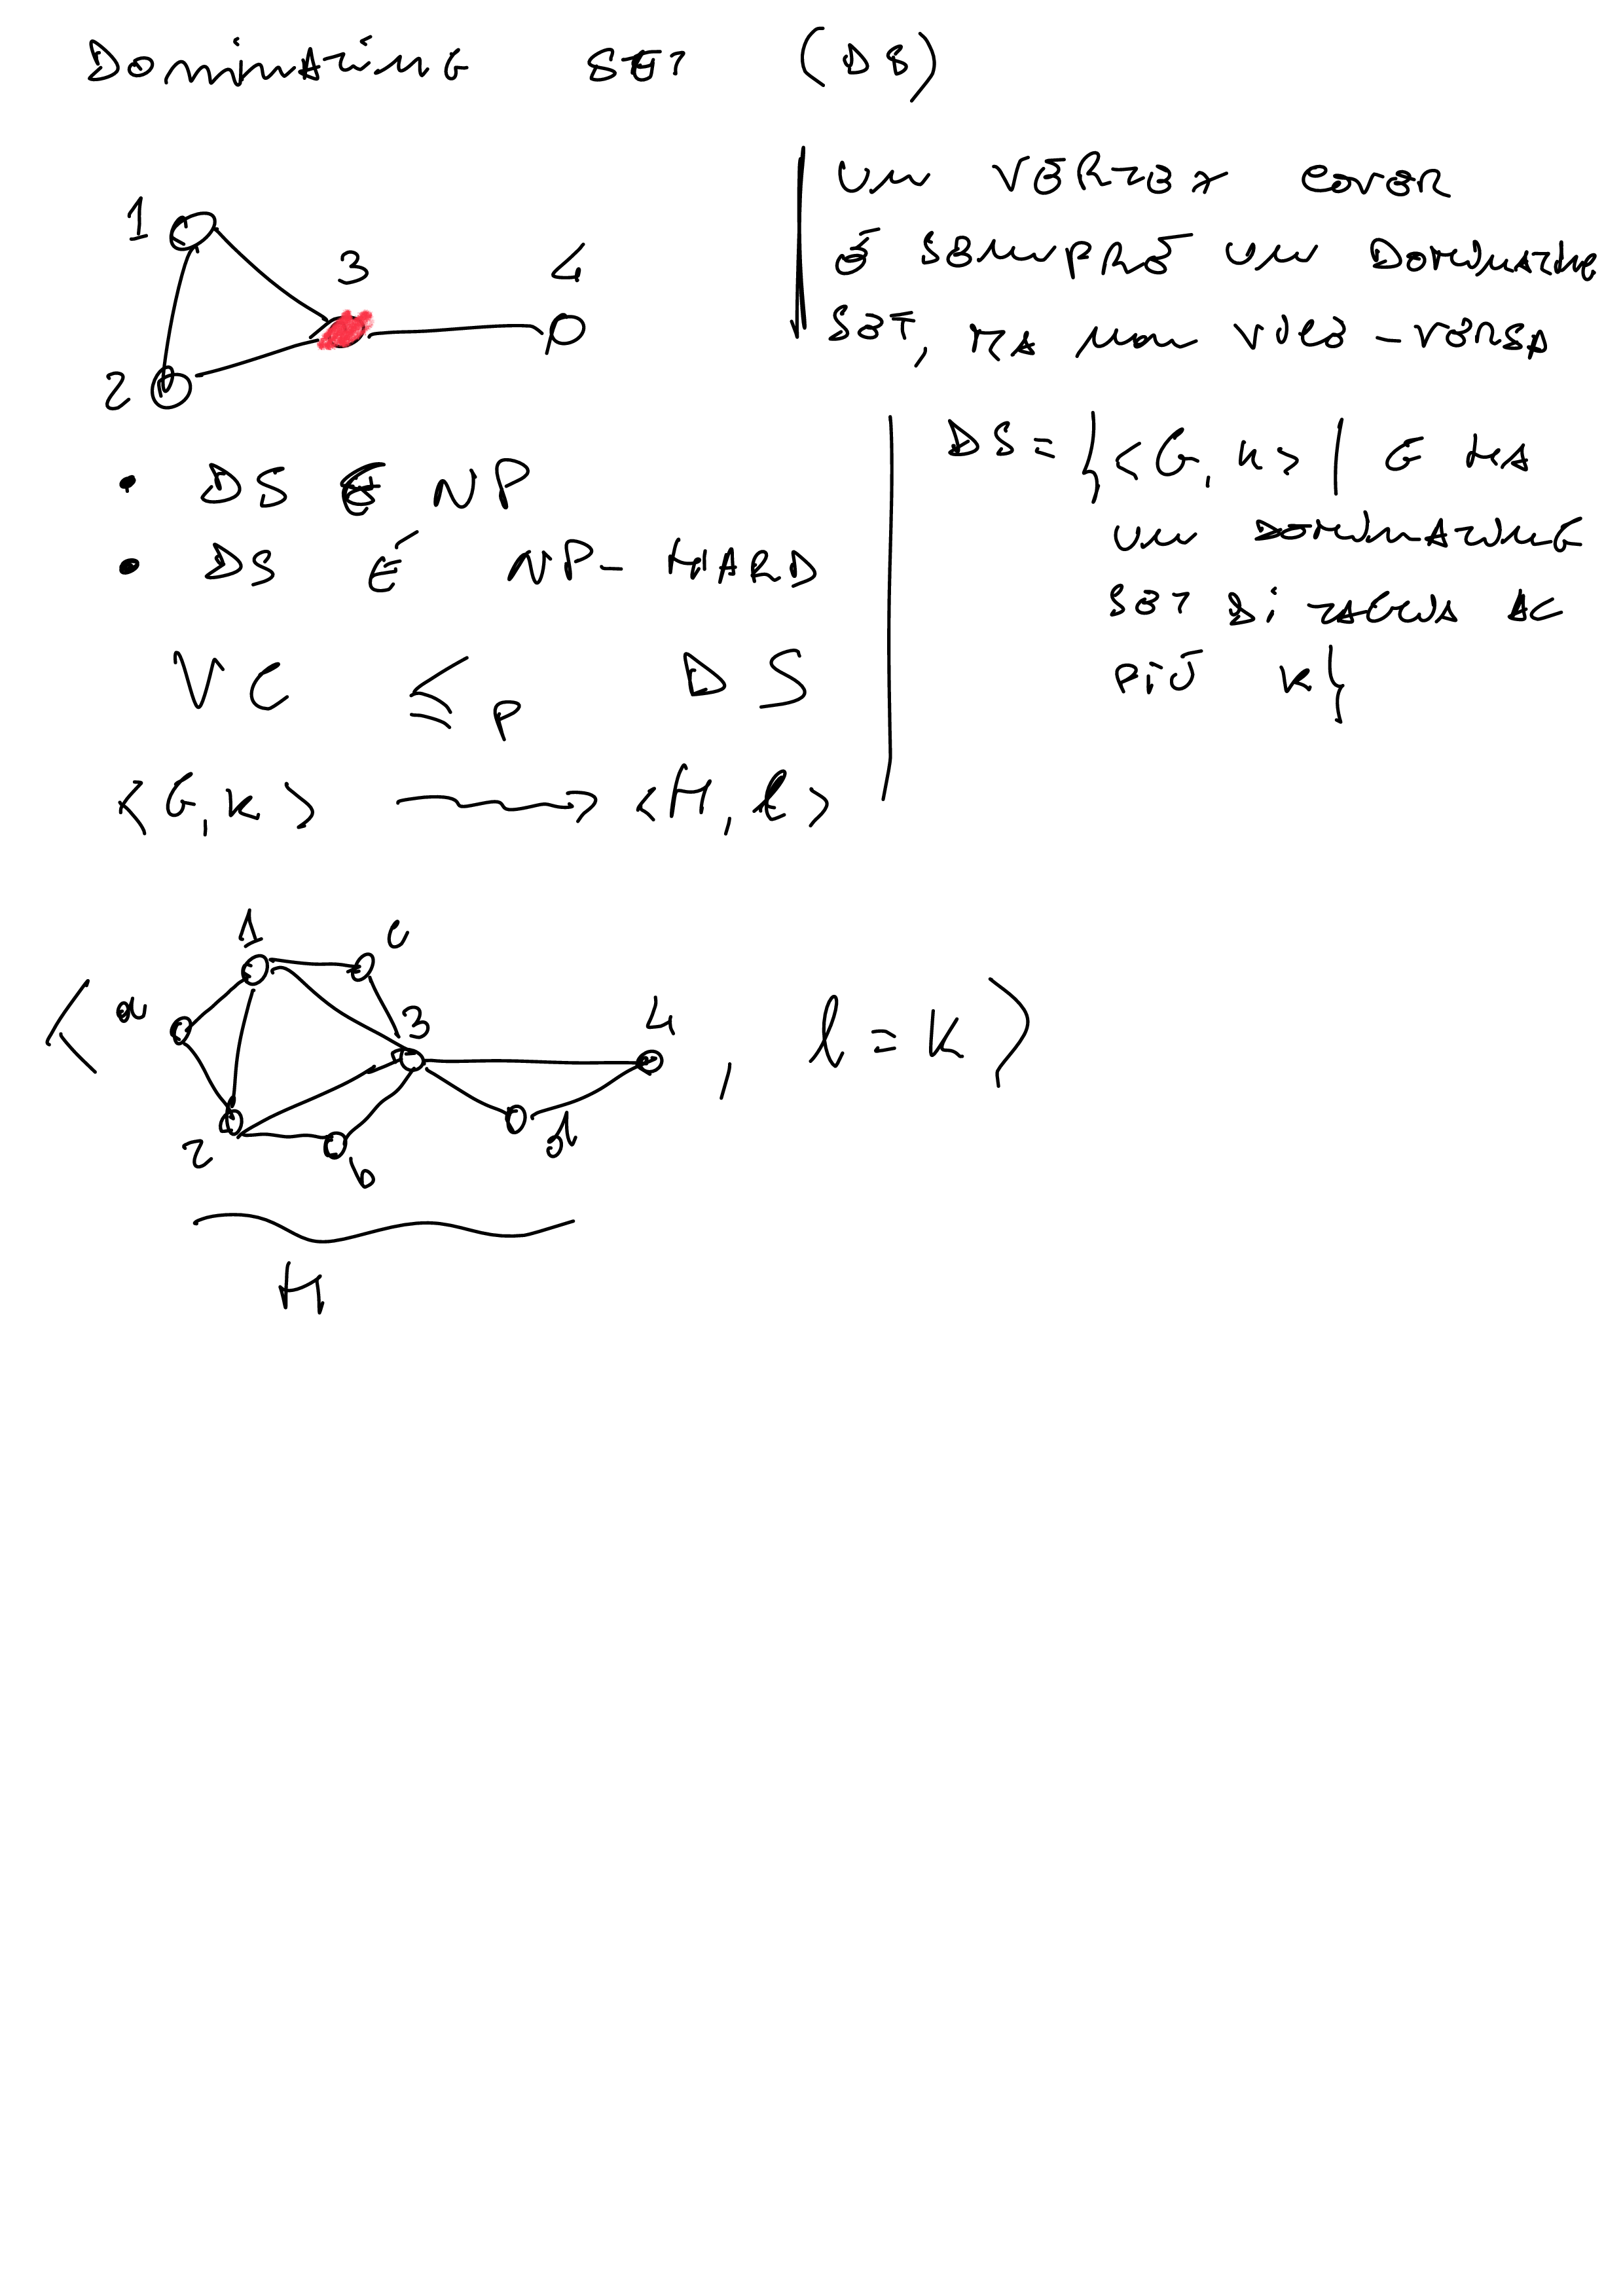 DOMINATING SET (DS)
1
3
4
2
UN VERTEX COVER
É SEMPRE UN DOMINATING
SET, MA NON VICE-VERSA
• DS ∈ NP
• DS É NP-HARD
VC ≤p DS
<G,k> → <H,ℓ>
DS = {<G,k> | G HA
UN DOMINATING
SET DI TAGLIA AL
PIÙ k}
1
c
a
3
4
< , ℓ = k >
2
b
d
H